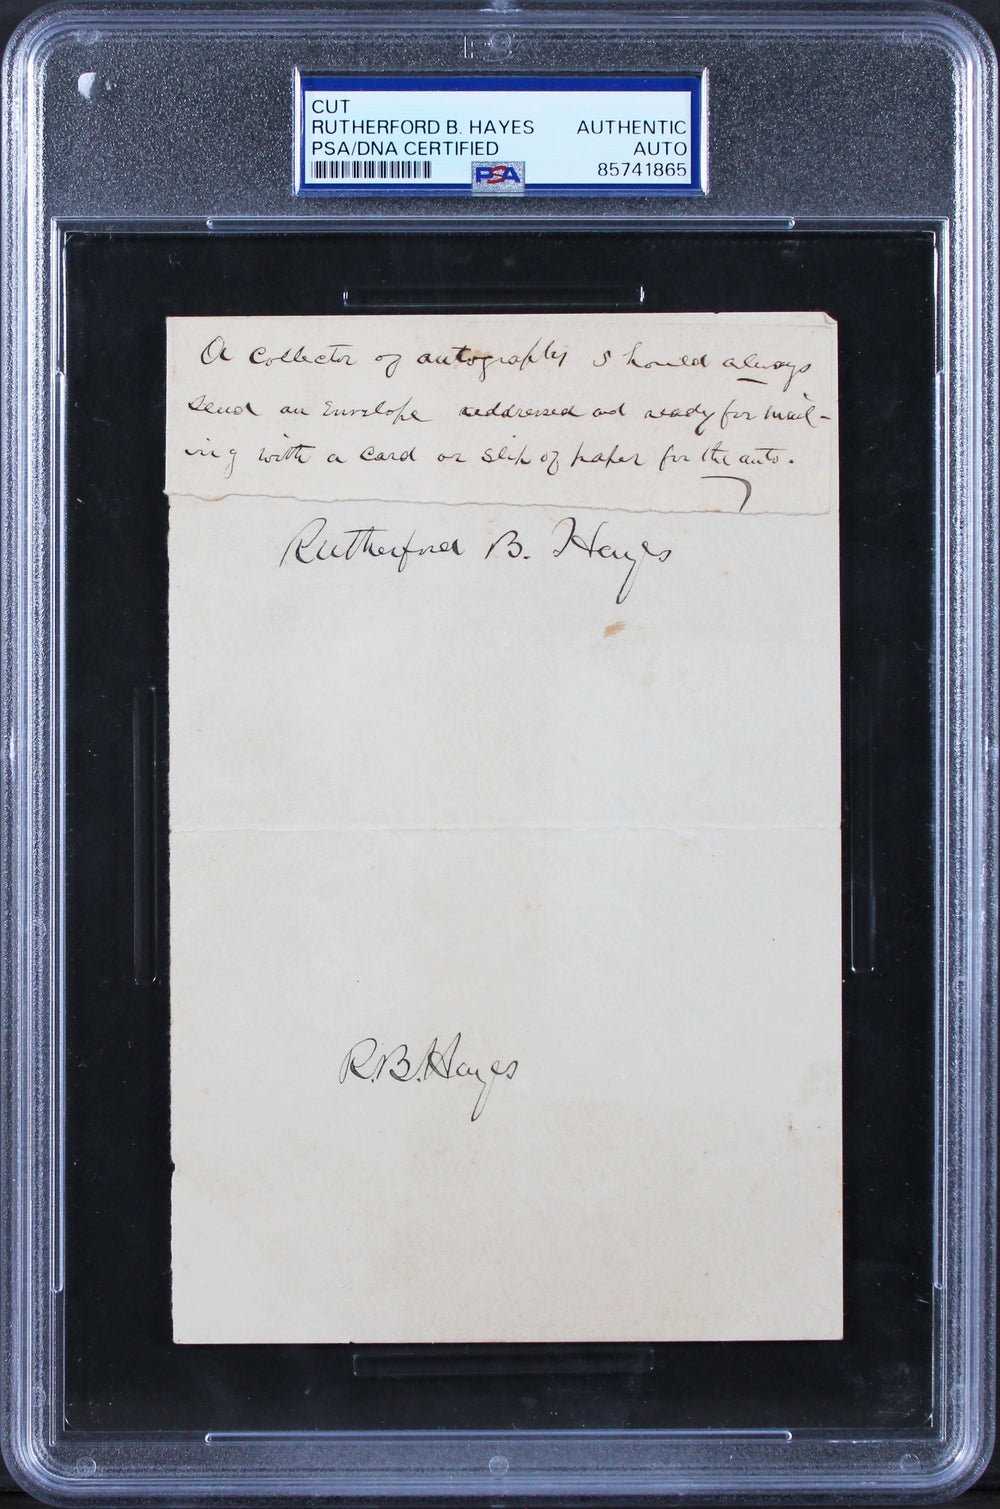 CUT
RUTHERFORD B. HAYES
PSA/DNA CERTIFIED
AUTHENTIC
AUTO
85741865
PSA
A collector of autographs should always
send an Envelope addressed and ready for mail-
ing with a card or slip of paper for the auto.
Rutherford B. Hayes
R.B. Hayes